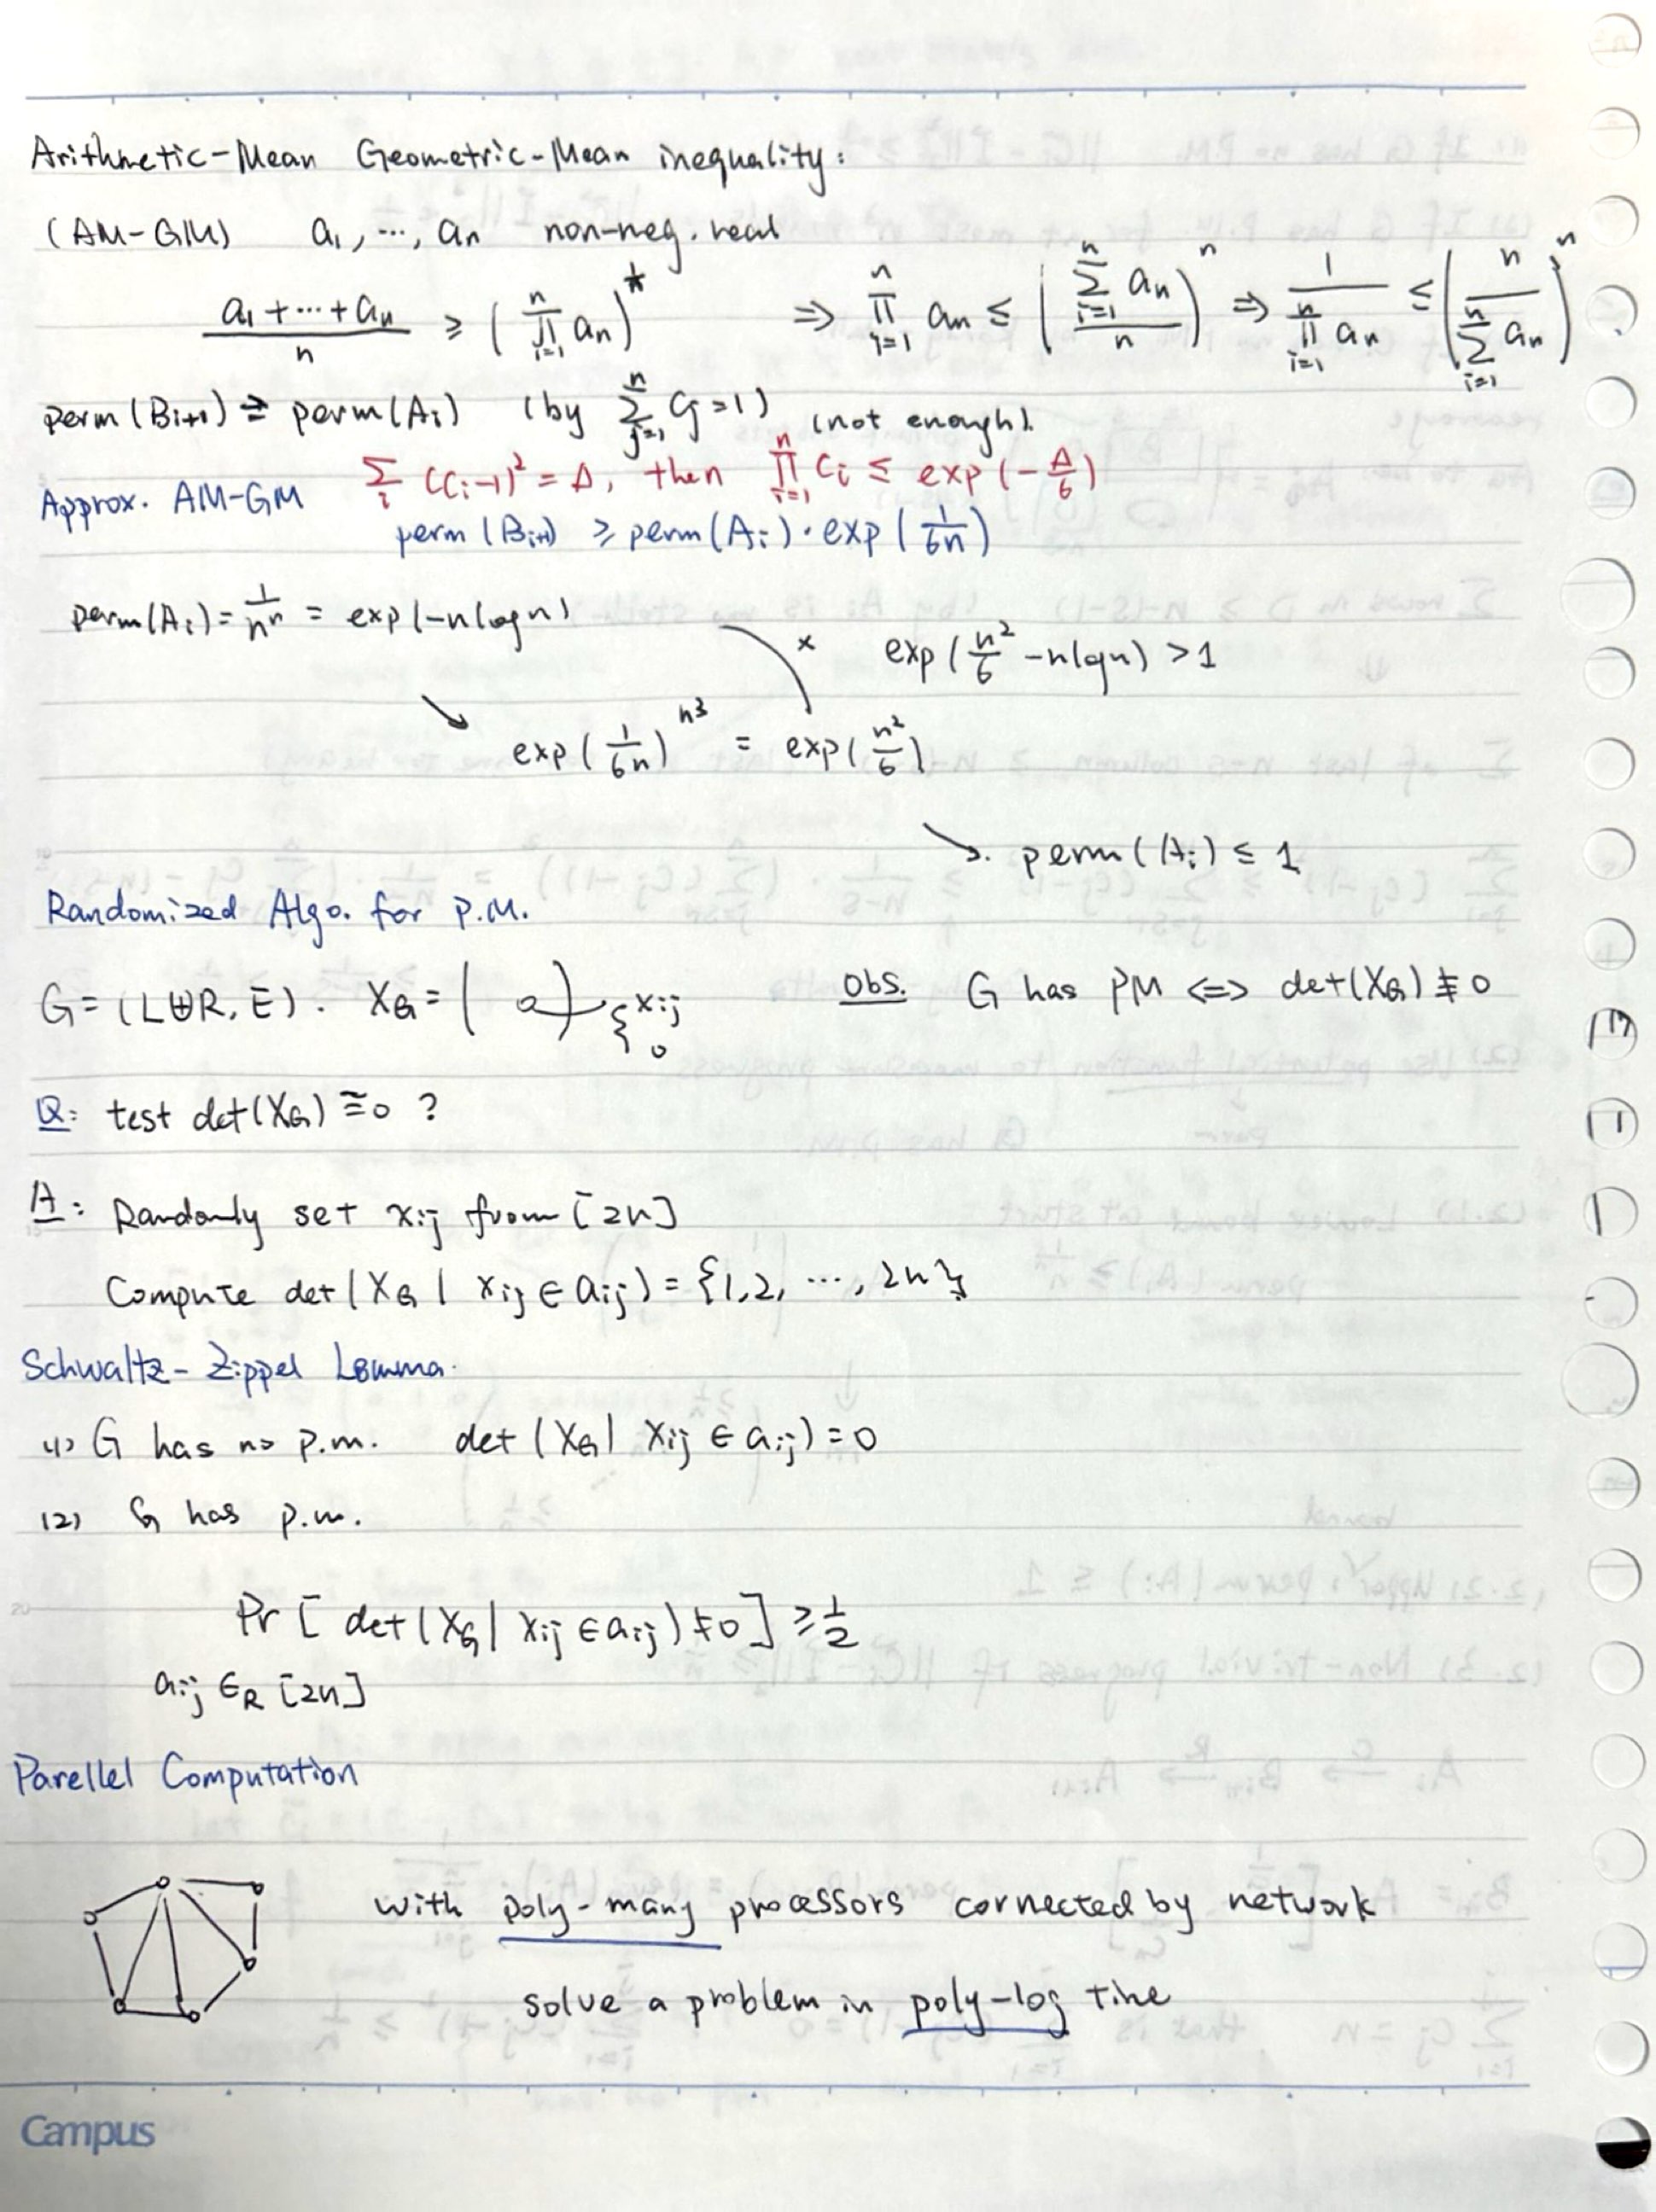 Arithmetic-Mean Geometric-Mean inequality:
(AM-GM) a₁, ..., aₙ non-neg. real
(a₁+...+aₙ)/n ≥ (∏_{i=1}^{n} aₙ)^{1/n} ⇒ ∏_{i=1}^{n} aₙ ≤ ((∑_{i=1}^{n} aₙ)/n)^n ⇒ 1/(∏_{i=1}^{n} aₙ) ≤ (n/(∑_{i=1}^{n} aₙ))^n
perm(B_{i+1}) ≥ perm(A_i) (by ∑_{j=1}^{n} C_j=1) (not enough).
Approx. AM-GM ∑_i (C_i-1)² = Δ, then ∏_{i=1}^{n} C_i ≤ exp(-Δ/6)
perm(B_{i+1}) ≥ perm(A_i)·exp(1/6n)
perm(A_i) = 1/n^n = exp(-n log n)
× exp(n²/6 - n log n) > 1
↘ exp(1/6n)^{n³} = exp(n²/6)
↘. perm(A_i) ≤ 1
Randomized Algo. for P.M.
G=(L⊎R, E). X_G = ( a ) { x_ij 0 Obs. G has PM <=> det(X_G) ≢ 0
Q: test det(X_G) ≡ 0 ?
A: Randomly set x_ij from [2n]
Compute det(X_G | x_ij ∈ a_ij) = {1,2, ..., 2n}
Schwaltz-Zippel Lemma.
(1) G has no p.m. det(X_G | x_ij ∈ a_ij)=0
(2) G has p.m.
Pr[det(X_G | x_ij ∈ a_ij) ≠ 0] ≥ 1/2
a_ij ∈_R [2n]
Parellel Computation
with poly-many processors connected by network
solve a problem in poly-log time
Campus